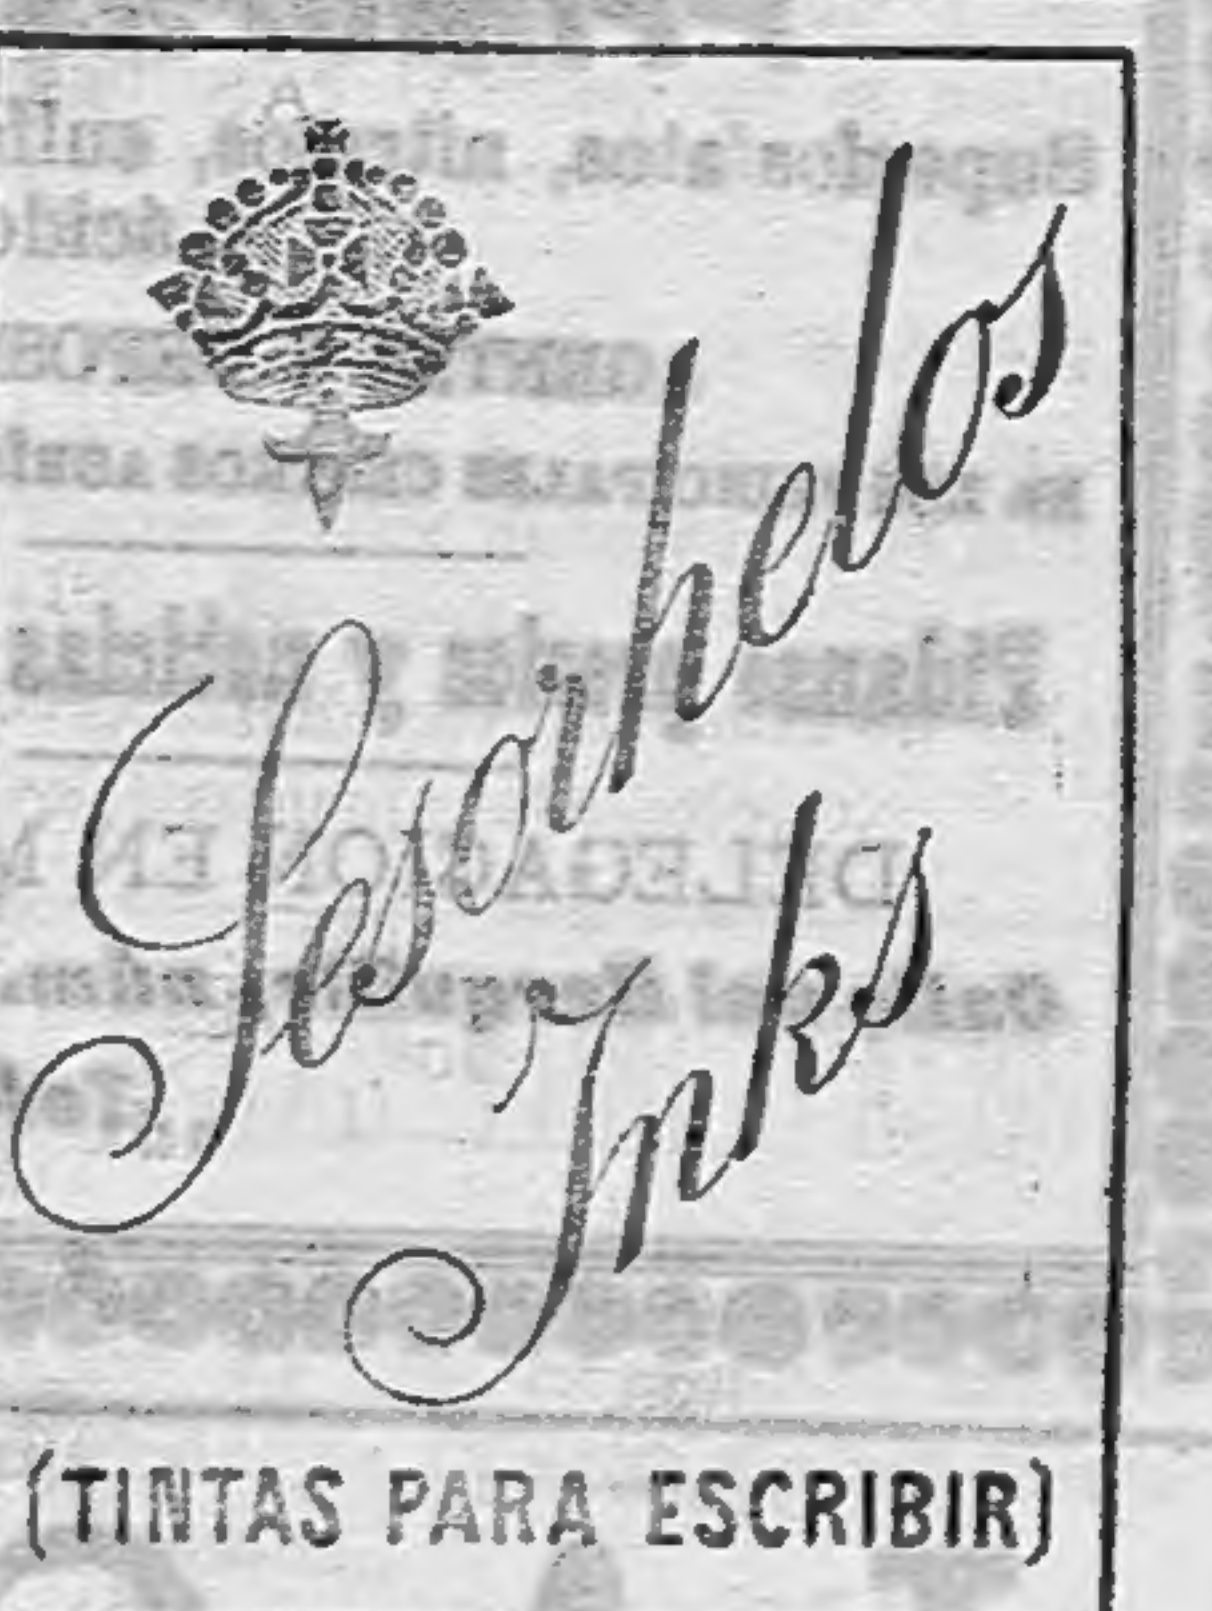 Sesorhelos
Inks
(TINTAS PARA ESCRIBIR)